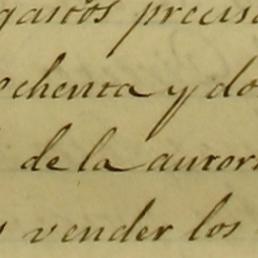 gastos precis
ochenta y do
de la autori
vender los